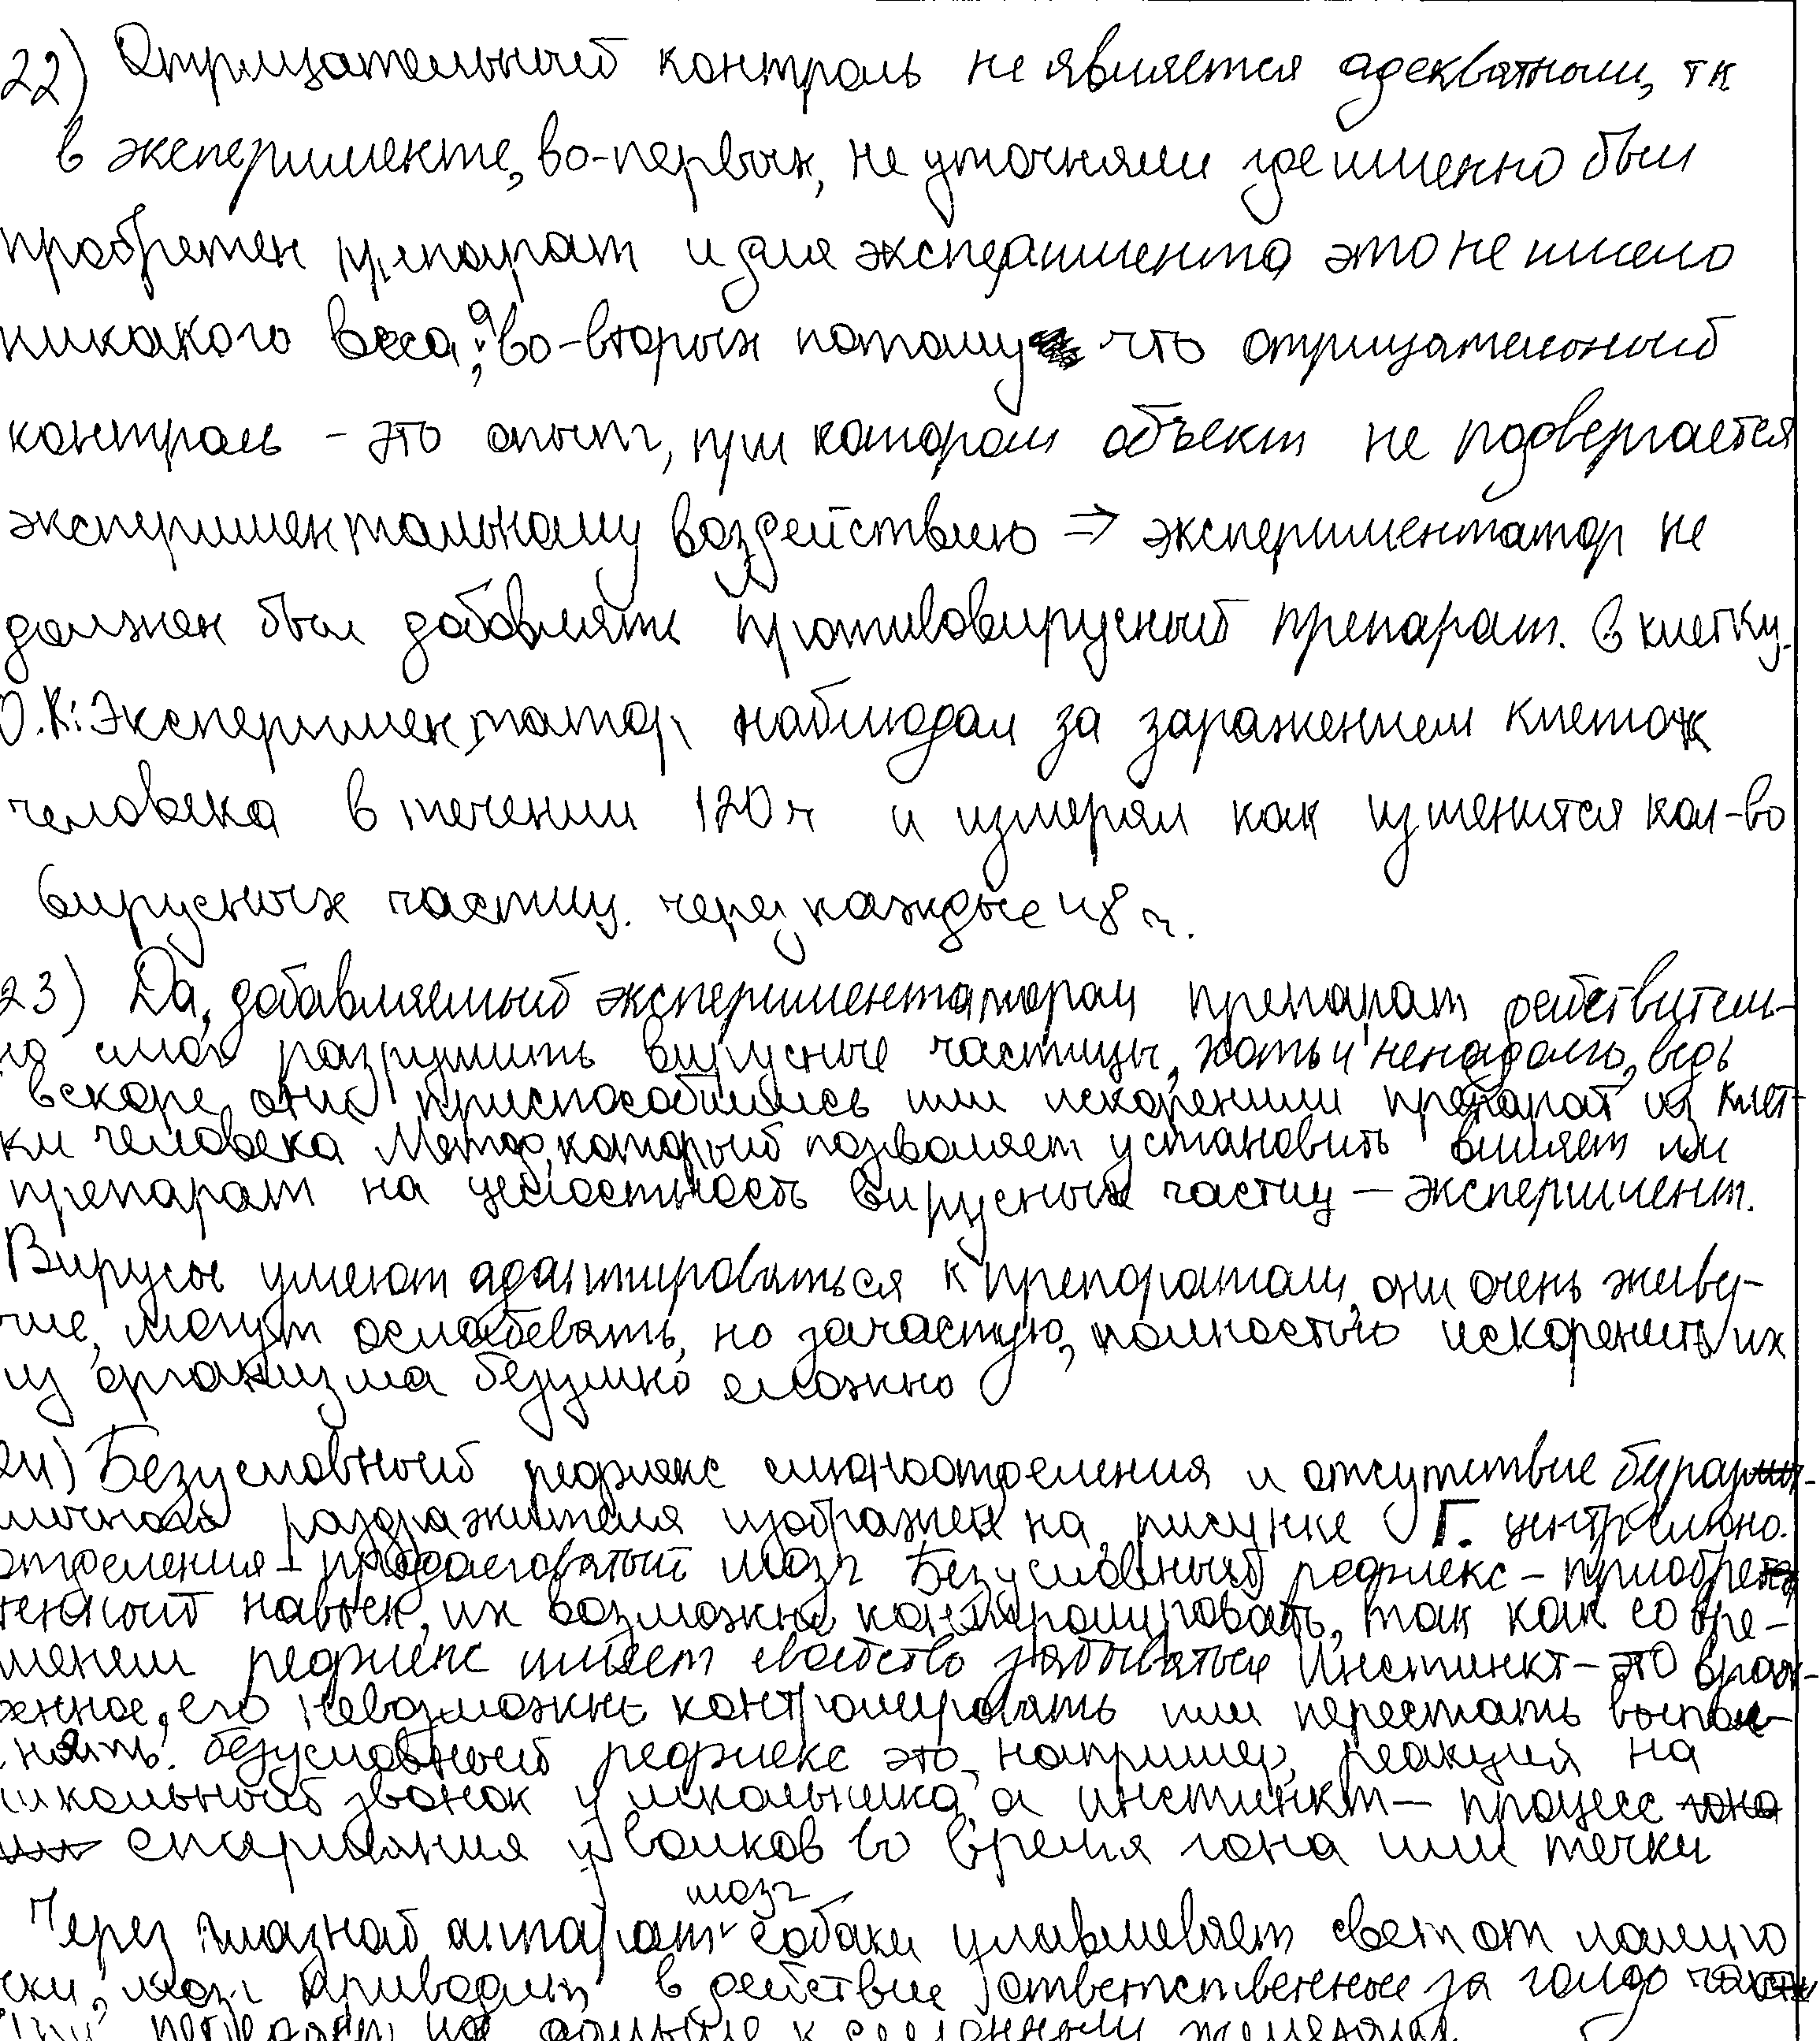 22) Отрицательный контроль не является адекватным, тк
в эксперименте, во-первых, не уточняли где именно был
пробретен препарат и для эксперимента это не имело
никакого веса, а во-вторых потому что отрицательный
контроль - это опыт, при котором объект не подвергается
экспериментальному воздействию => экспериментатор не
должен был добавлять противовирусный препарат. в клетку.
О.К: Экспериментатор наблюдал за заражением клеток
человека в течении 120 ч и измерял как изменится кол-во
вирусных частиц. через каждые 48 ч.
23) Да, добавляемый экспериментатором препарат действитель-
но смог разрушить вирусные частицы, хоть и ненадолго, ведь
вскоре они приспособились или искоренили препарат из клет-
ки человека Метод, который позволяет установить влияет ли
препарат на целостность вирусных частиц - эксперимент.
Вирусы умеют адаптироваться к препаратам, они очень живу-
чие, могут ослабевать, но зачастую, полностью искоренить их
из организма безумно сложно
24) Безусловный рефлекс слюноотделения и отсутствие
раздражителя изображен на рисунке Г. центр слюно.
отделения - продолговатый мозг Безусловный рефлекс - приобре
тенный навык, их возможно контролировать, так как со вре-
менем рефлекс имеет свойство забываться Инстинкт - это врож-
денное, его невозможно контролировать или перестать выпол-
нять. безусловный рефлекс это, например, реакция на
школьный звонок у школьника, а инстинкт - процесс
спаривания у волков во время гона или течки
Через глазной аппарат мозг собаки улавливает свет от лампо
чки, мозг приводит в действие ответственные за голод